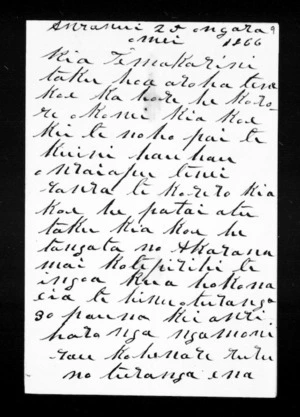 25 ongara
mei 1866
Kia Temakarini
taku hoa aroha tena
koe ka hore he koro
re okomi kia koe
kei te noho pai te
kuini hau hau
tenei
ranra te korero kia
koe he patai atu
taku kia koe he
tangata no Akarana
mai kotepirihi te
ingoa kua hokona
eia te hinu oturanga
30 pauna kei
horo nga ngamoni
rau kohenare ruru
no turanga ena